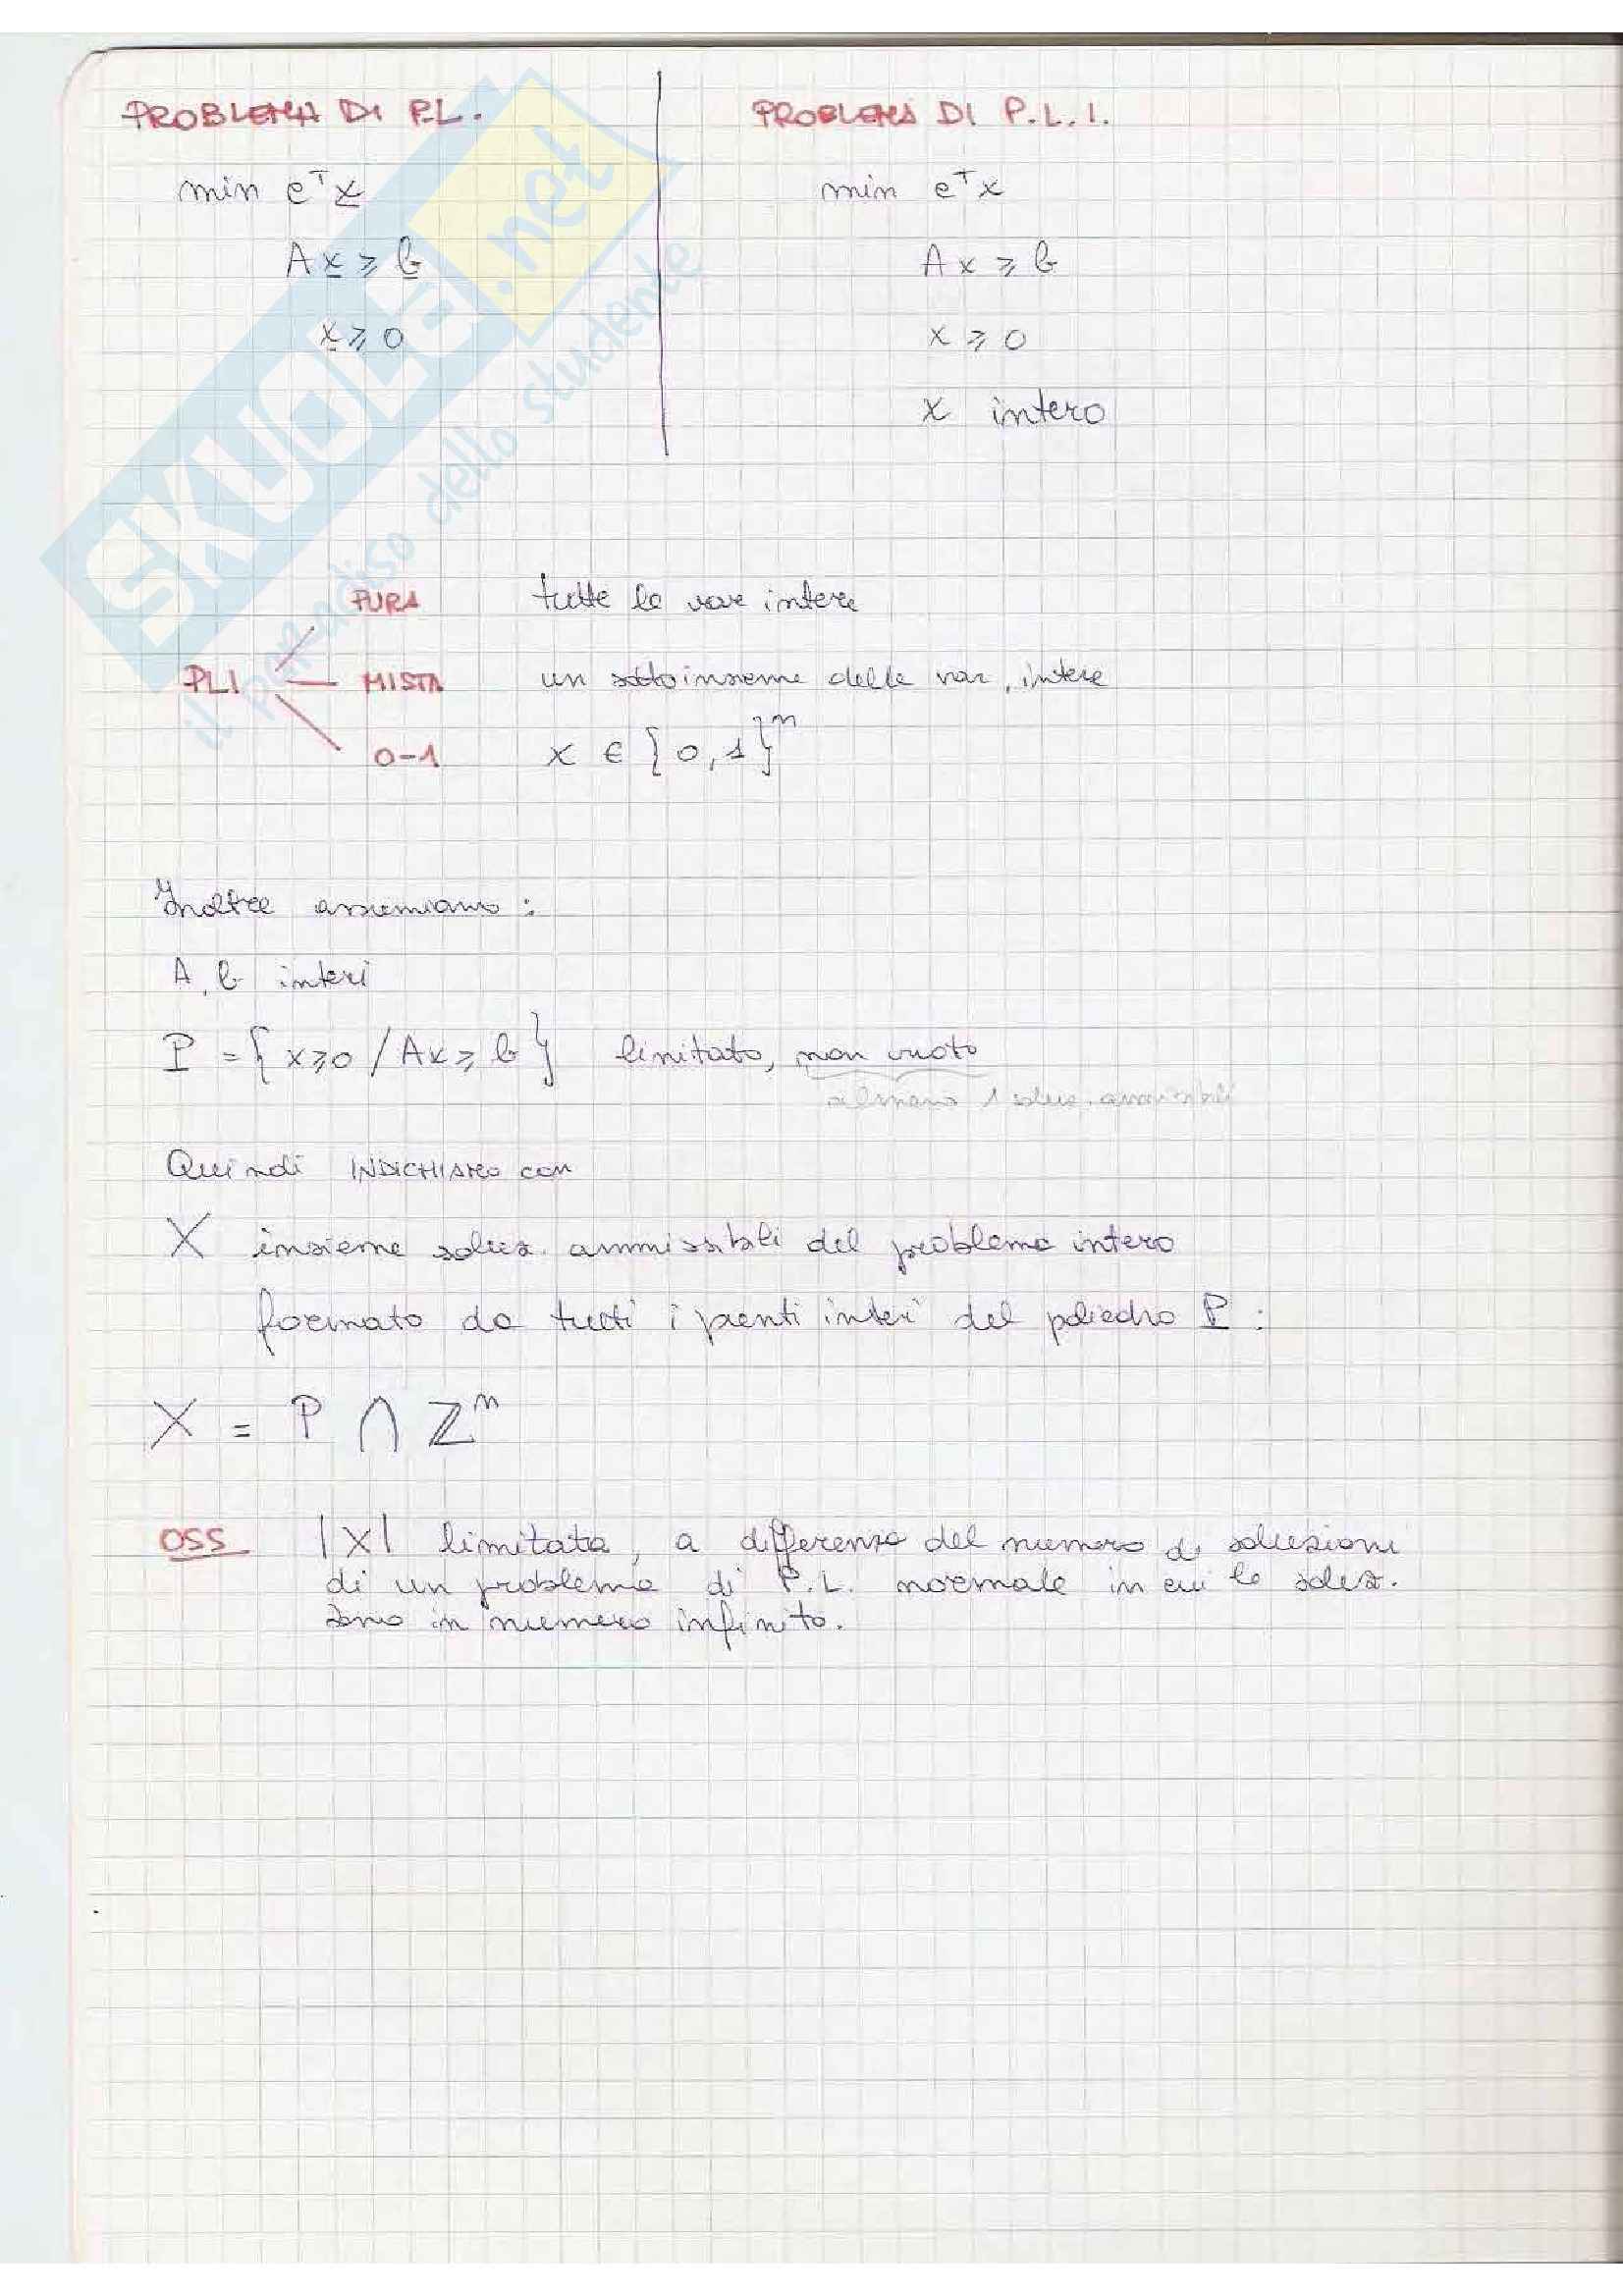 PROBLEMA DI P.L.
min cᵀx
Ax ≥ b
x ≥ 0
PROBLEMA DI P.L.I.
min cᵀx
Ax ≥ b
x ≥ 0
x intero
SKUOLA.net
il paradiso dello studente
PURA tutte le var intere
PLI MISTA un sottoinsieme delle var. intere
0-1 x ∈ {0,1}ⁿ
Inoltre assumiamo:
A, b interi
P = {x≥0 / Ax ≥ b} limitato, non vuoto
almeno 1 soluz. ammissibili
Quindi INDICHIAMO con
X insieme soluz. ammissibili del problema intero
formato da tutti i punti interi del poliedro P:
X = P ∩ ℤⁿ
OSS |X| limitata, a differenza del numero di soluzioni
di un problema di P.L. normale in cui le soluz.
sono in numero infinito.